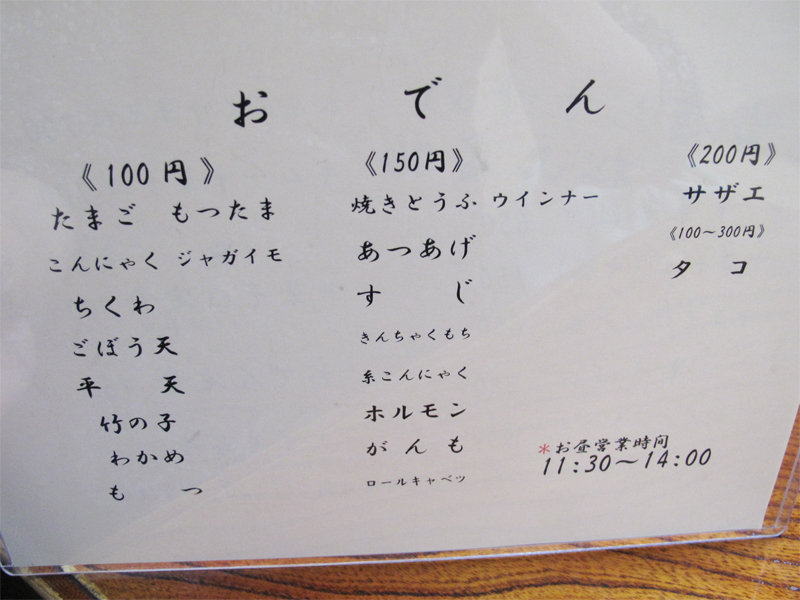 おでん
《100円》
たまご もつたま
こんにゃく ジャガイモ
ちくわ
ごぼう天
平天
竹の子
わかめ
もつ
《150円》
焼きとうふ ウインナー
あつあげ
すじ
きんちゃくもち
糸こんにゃく
ホルモン
がんも
ロールキャベツ
《200円》
サザエ
《100〜300円》
タコ
*お昼営業時間
11:30〜14:00